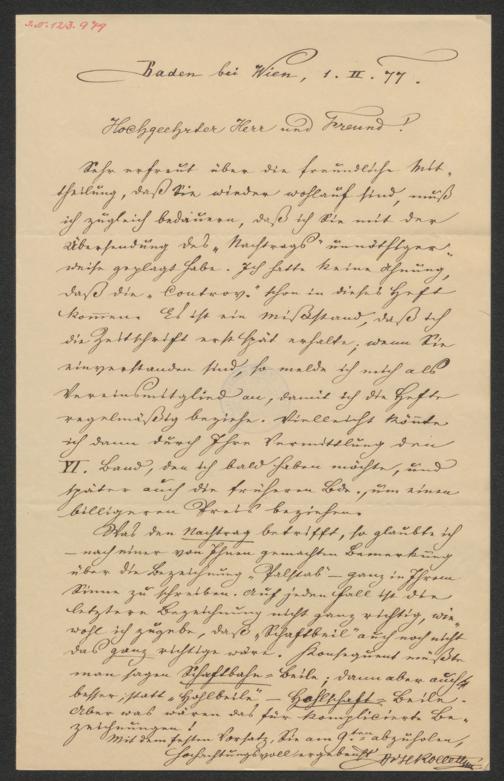 I.N. 123.979
Baden bei Wien, 1. II. 77.
Hochgeehrter Herr und Freund!
Sehr erfreut über die freundliche Mit-
theilung, daß Sie wieder wohlauf sind, muß
ich zugleich bedauern, daß ich Sie mit der
Übersendung des „Nachtrags" unnöthiger-
weise geplagt habe. Ich hatte keine Ahnung,
daß die „Controv." schon in dieses Heft
komme. Es ist ein Mißstand, daß ich
die Zeitschrift erst spät erhalte; wenn Sie
einverstanden sind, so melde ich mich als
Vereinsmitglied an, damit ich die Hefte
regelmäßig beziehe. Vielleicht könnte
ich dann durch Ihre Vermittlung den
VI. Band, den ich bald haben möchte, und
später auch die früheren Bde., um einen
billigeren Preis beziehen.
Was den Nachtrag betrifft, so glaubte ich
— nach einer von Ihnen gemachten Bemerkung
über die Bezeichnung „Palstab" — ganz in Ihrem
Sinne zu schreiben. Auf jeden Fall ist die
letztere Bezeichnung nicht ganz richtig, wie-
wohl ich zugebe, daß „Schaftbeil" auch noch nicht
das ganz richtige wäre. Konsequent müßte
man sagen Schaftbahn-Beile; dann aber auch
besser, statt „Hohlbeile" — Hohlschaft-Beile.
Aber was wären das für komplicierte Be-
zeichnungen!
Mit dem festen Vorsatz, Sie am 9ten abzuholen,
hochachtungsvoll ergebenst